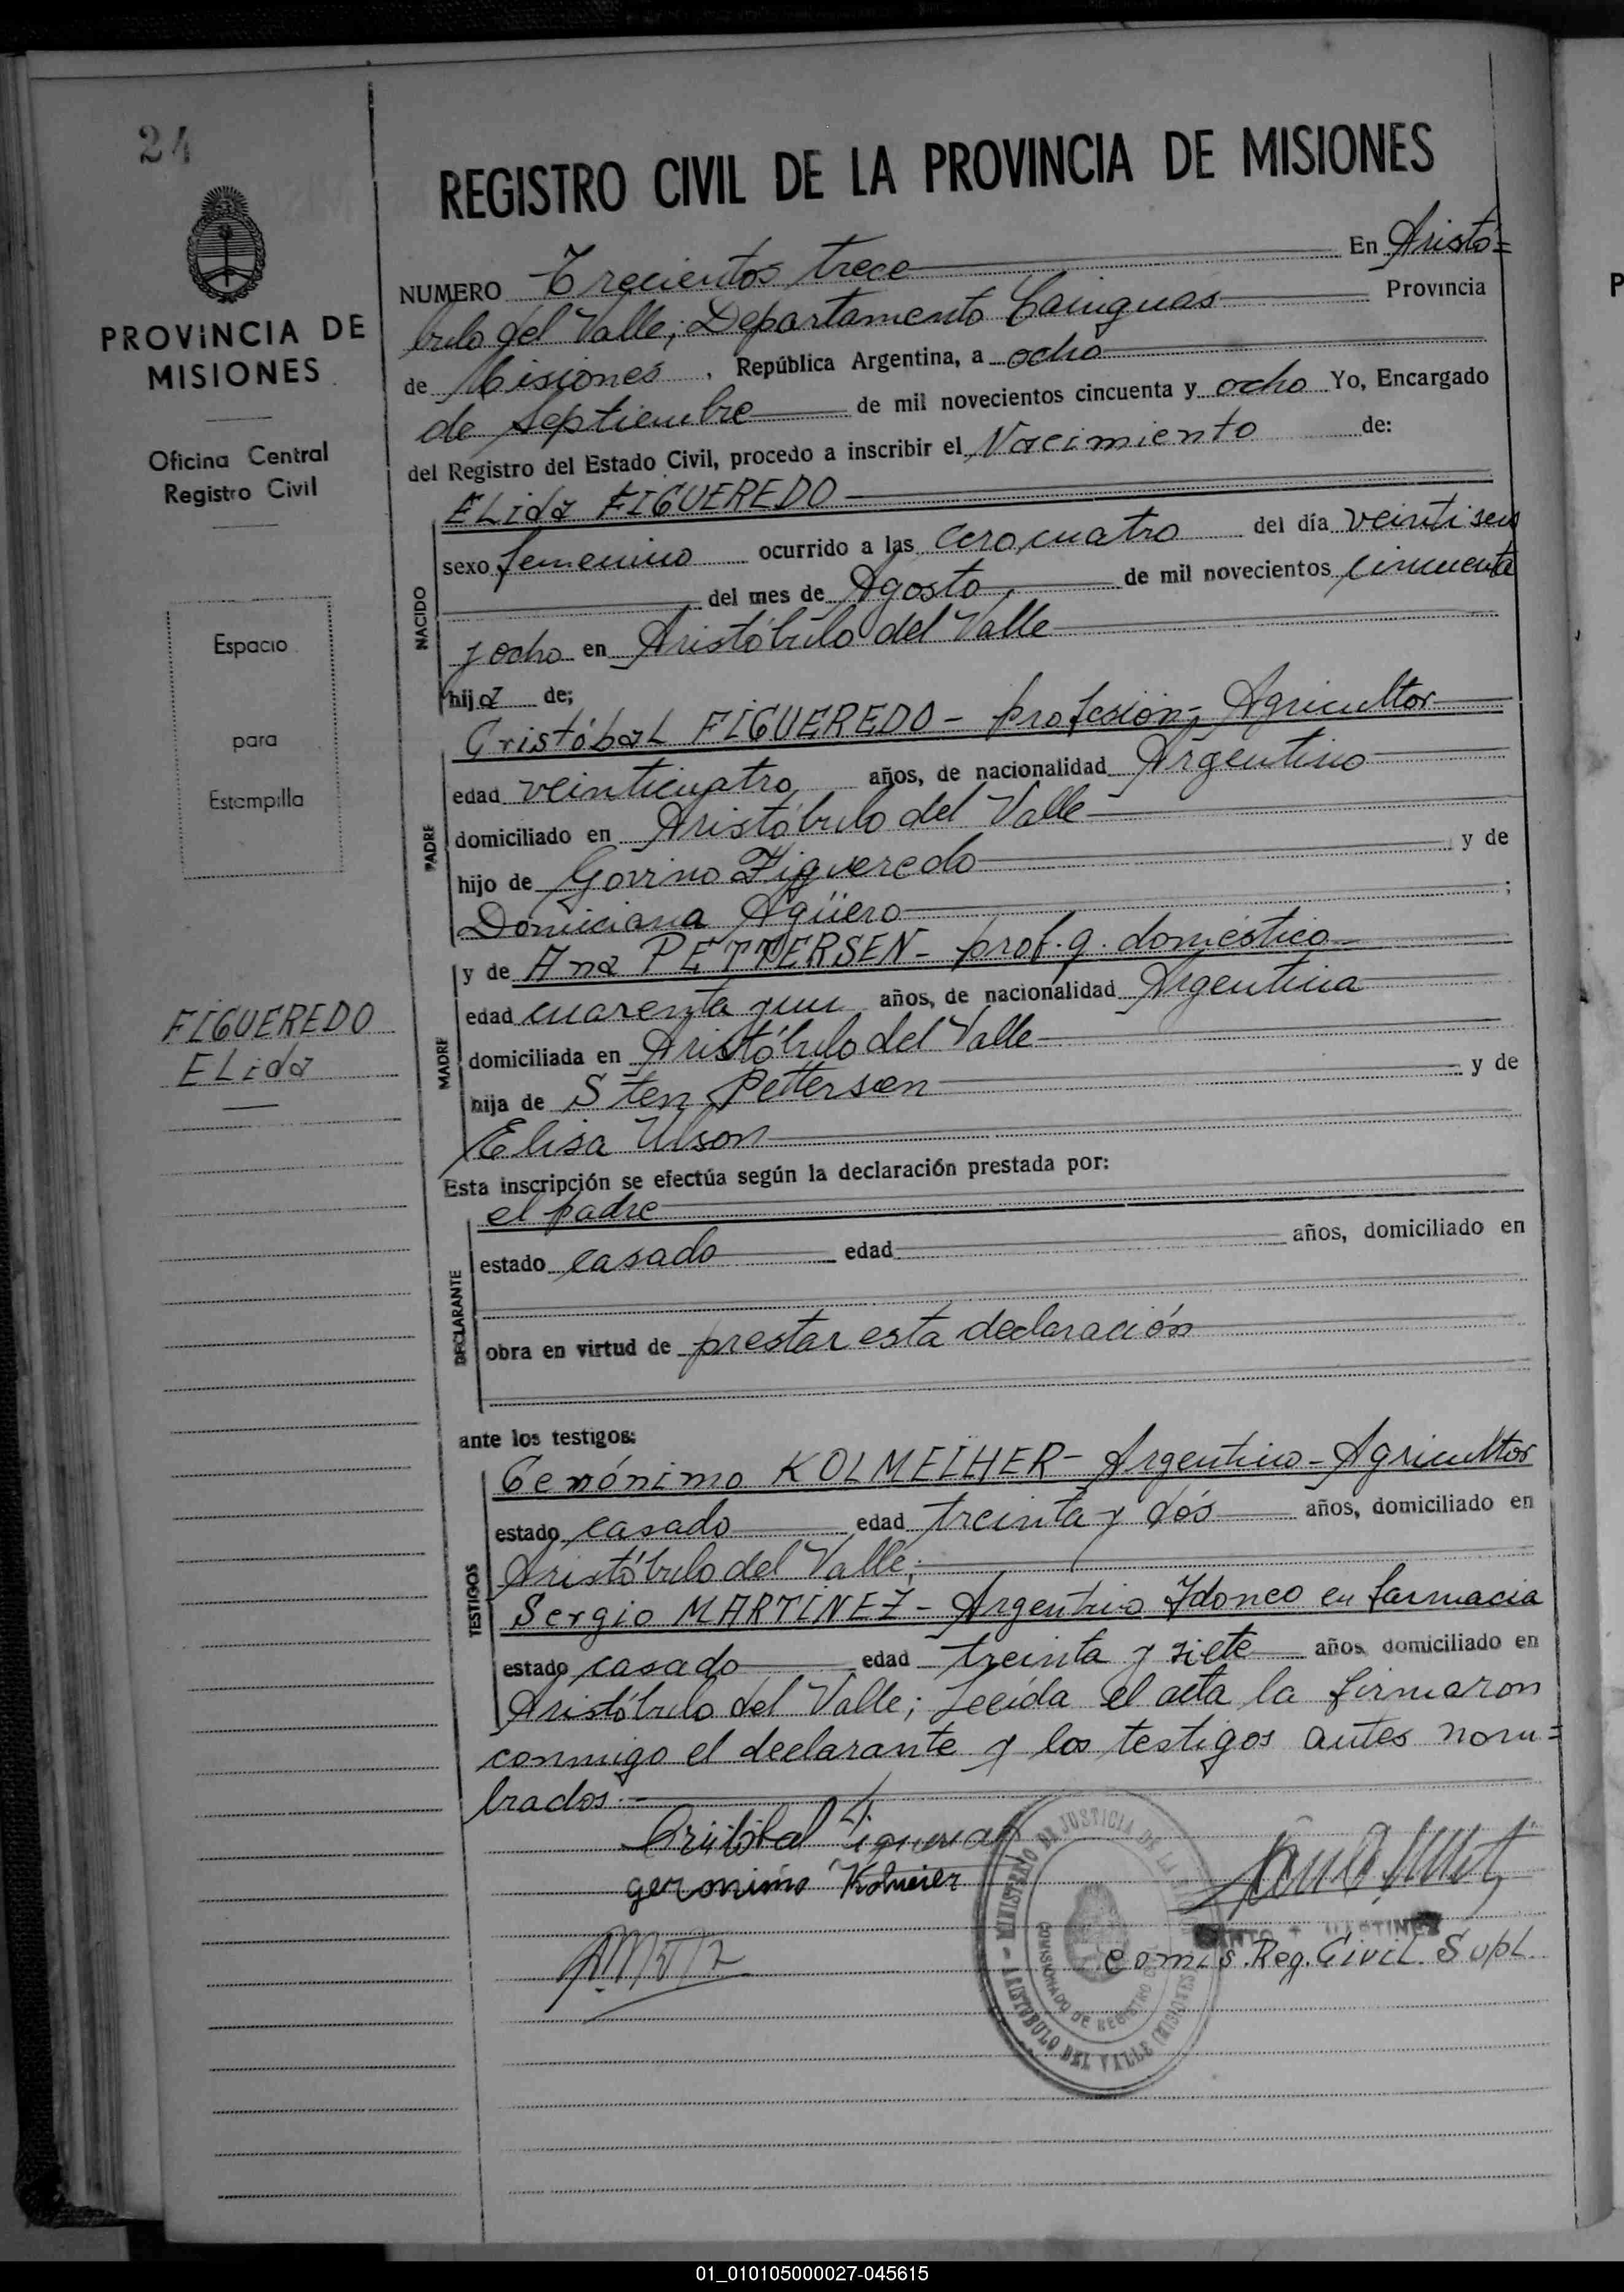 24
PROVINCIA DE
MISIONES
Oficina Central
Registro Civil
Espacio
para
Estampilla
FIGUEREDO
ELida
REGISTRO CIVIL DE LA PROVINCIA DE MISIONES
NUMERO Trecientos trece En Aristó=
bulo del Valle; Departamento Cainguas Provincia
de Misiones, República Argentina, a ocho
de septiembre de mil novecientos cincuenta y ocho Yo, Encargado
del Registro del Estado Civil, procedo a inscribir el Nacimiento de:
NACIDO
ELida FIGUEREDO
sexo femenino ocurrido a las cero cuatro del día veintiseis
del mes de Agosto, de mil novecientos cincuenta
y ocho en Aristóbulo del Valle
hija de;
PADRE
Cristóbal FIGUEREDO - profesión- Agricultor
edad veinticuatro años, de nacionalidad Argentino
domiciliado en Aristóbulo del Valle
hijo de Govino Figueredo y de
Domiciana Agüero ;
MADRE
y de Ana PETTERSEN - prof. q. doméstico
edad cuarenta y un años, de nacionalidad Argentina
domiciliada en Aristóbulo del Valle
hija de Sten Pettersen y de
Elisa Ulson
Esta inscripción se efectúa según la declaración prestada por:
DECLARANTE
el padre
estado casado edad años, domiciliado en
obra en virtud de prestar esta declaración
ante los testigos:
TESTIGOS
Gerónimo KOLMEIHER - Argentino - Agricultor
estado casado edad treinta y dós años, domiciliado en
Aristóbulo del Valle;
Sergio MARTINEZ - Argentino Idoneo en farmacia
estado casado edad treinta y siete años domiciliado en
Aristóbulo del Valle; Leeída el acta la firmaron
conmigo el declarante y los testigos antes nom=
brados.-
Cristobal
geronimo Kolmeier
MINISTERIO DE JUSTICIA DE LA
COMISIONADO DE REGISTRO
ARISTOBULO DEL VALLE (MISIONES)
MARTINEZ
comis. Reg. Civil. Supl.
01_010105000027-045615